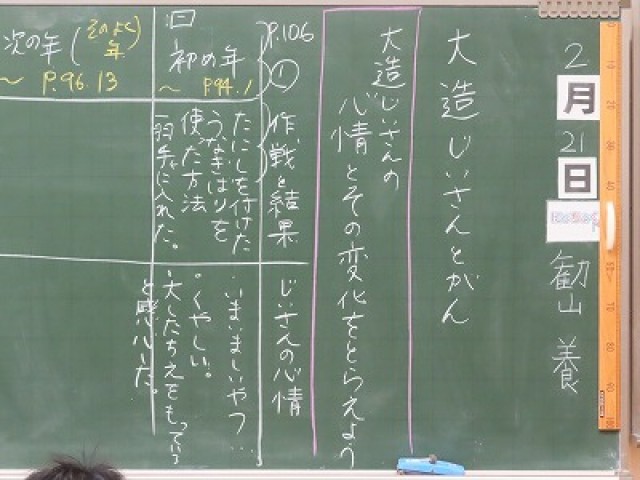 2
月
21
日
大造じいさんとがん
大造じいさんの
心情とその変化をとらえよう
P.106
①
作戦と結果
じいさんの心情
初め年
～ P94.1
たにしを付けた
うなぎばりを
使った方法
一羽手に入れた。
・いまいましいやつ…
・くやしい。
・大したちえをもっている
と感心した。
次の年(そのよく年)
～ P.96.13